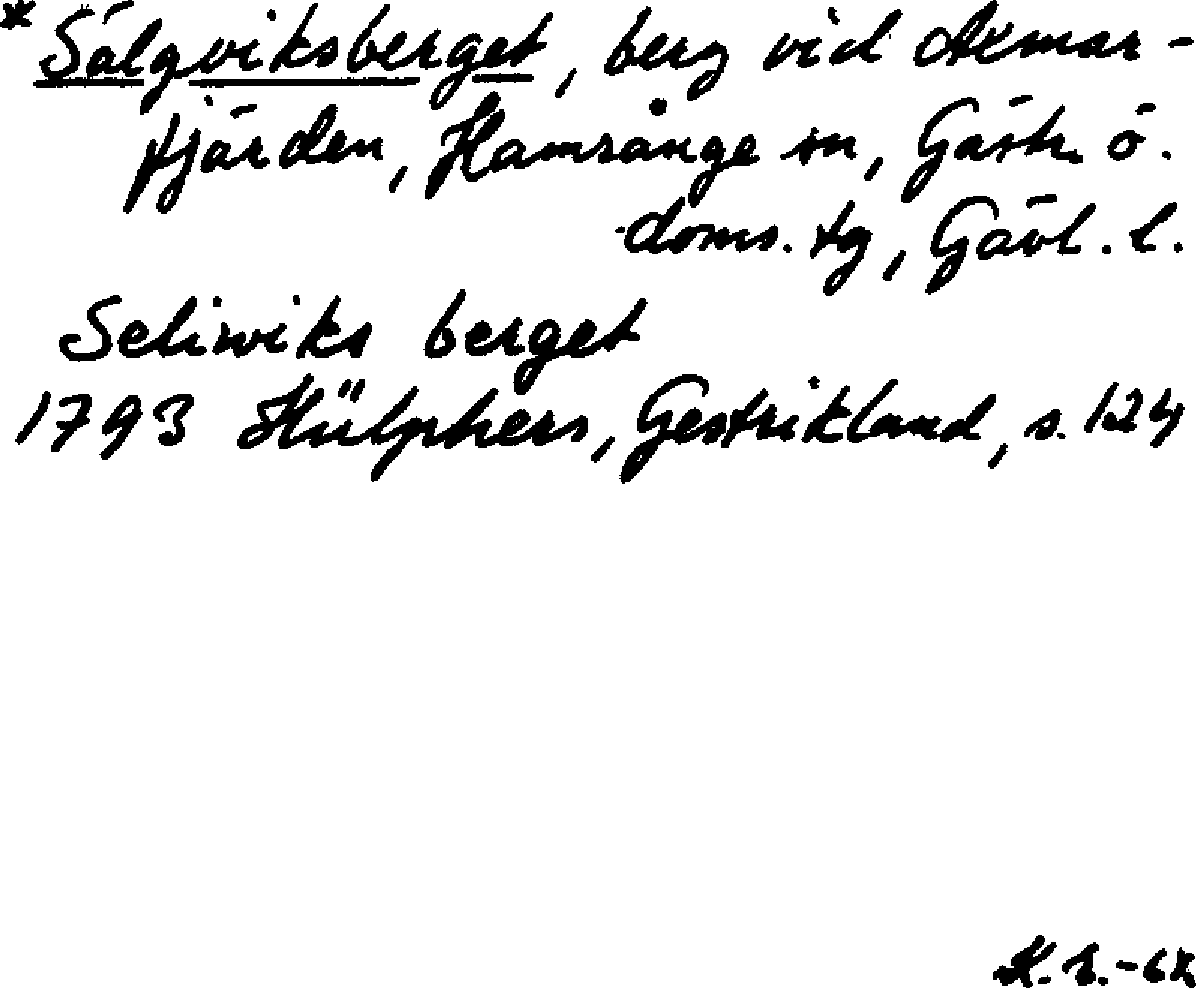 * Sälgviksberget, berg vid Axmar-
fjärden, Hamrånge sn, Gästr. ö.
doms. tg, Gävl. l.
Seliwiks berget
1793 Hülphers, Gestrikland, s. 124